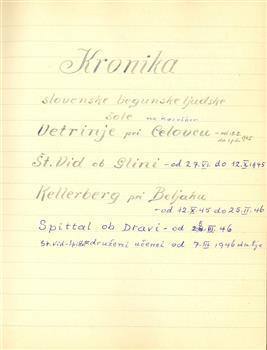 Kronika
slovenske begunske ljudske
šole na Koroškem
Vetrinje pri Celovcu - od
do 1945
Št. Vid ob Glini - od 27.VI. do 12.X.1945
Kellerberg pri Beljaku
- od 12.X.45 do 25.II.46
Spittal ob Dravi - od 46
Št. Vid-Spittal združeni učenci od 7.III 1946 dalje